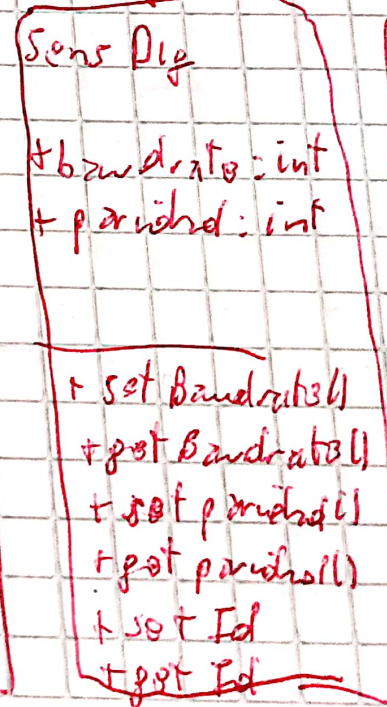 Sens Dig
+ baudrate: int
+ paridad: int
+ set Baudrate()
+ get Baudrate()
+ set paridad()
+ get paridad()
+ set Id
+ get Id